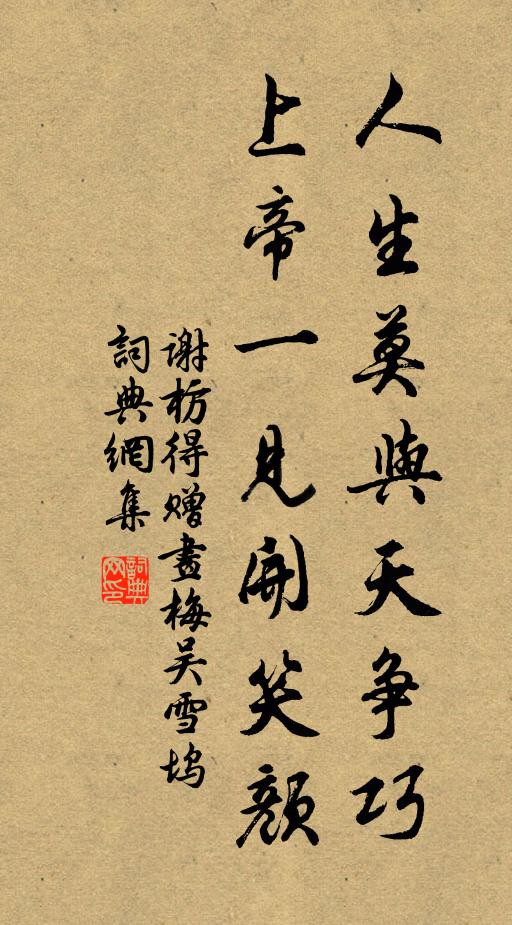 人生莫與天争巧
上帝一見開笑顔
谢枋得赠畫梅吴雪坞
詞典網集
詞典网印